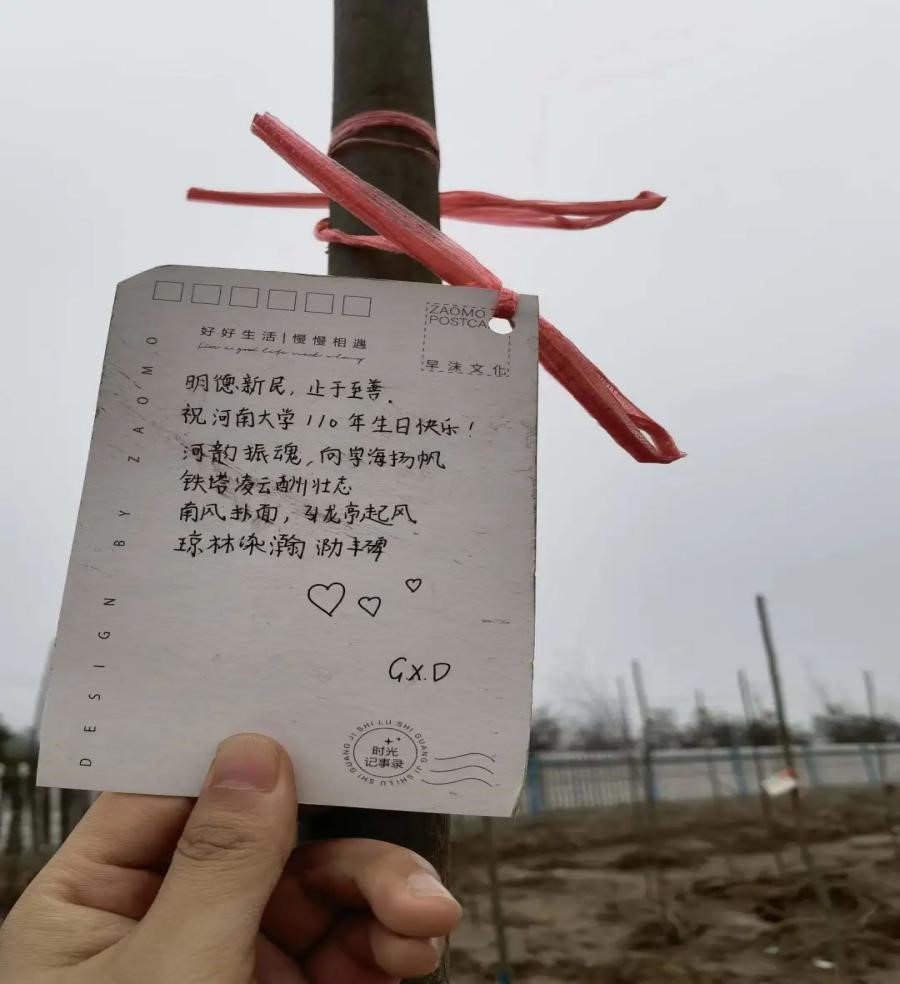 ZAOMO
POSTCA
好好生活|慢慢相遇
早沫文化
明德新民，止于至善.
祝河南大学110年生日快乐！
河韵振魂，向学海扬帆
铁塔凌云酬壮志
南风扑面，马龙亭起风
琼林染瀚泐丰碑
G.X.D
DESIGN BY ZAOMO
SHI GUANG JI SHI LU SHI GUANG JI SHI LU
时光
记事录